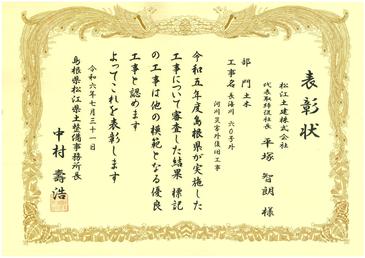 表彰状
松江土建株式会社
代表取締役社長 平塚智朗 様
部門 土木
工事名 長海川 六〇号外
河川災害外復旧工事
令和五年度島根県が実施した
工事について審査した結果 標記
の工事は他の模範となる優良
工事と認めます
よってこれを表彰します
令和六年七月三十一日
島根県松江県土整備事務所長
中村壽浩